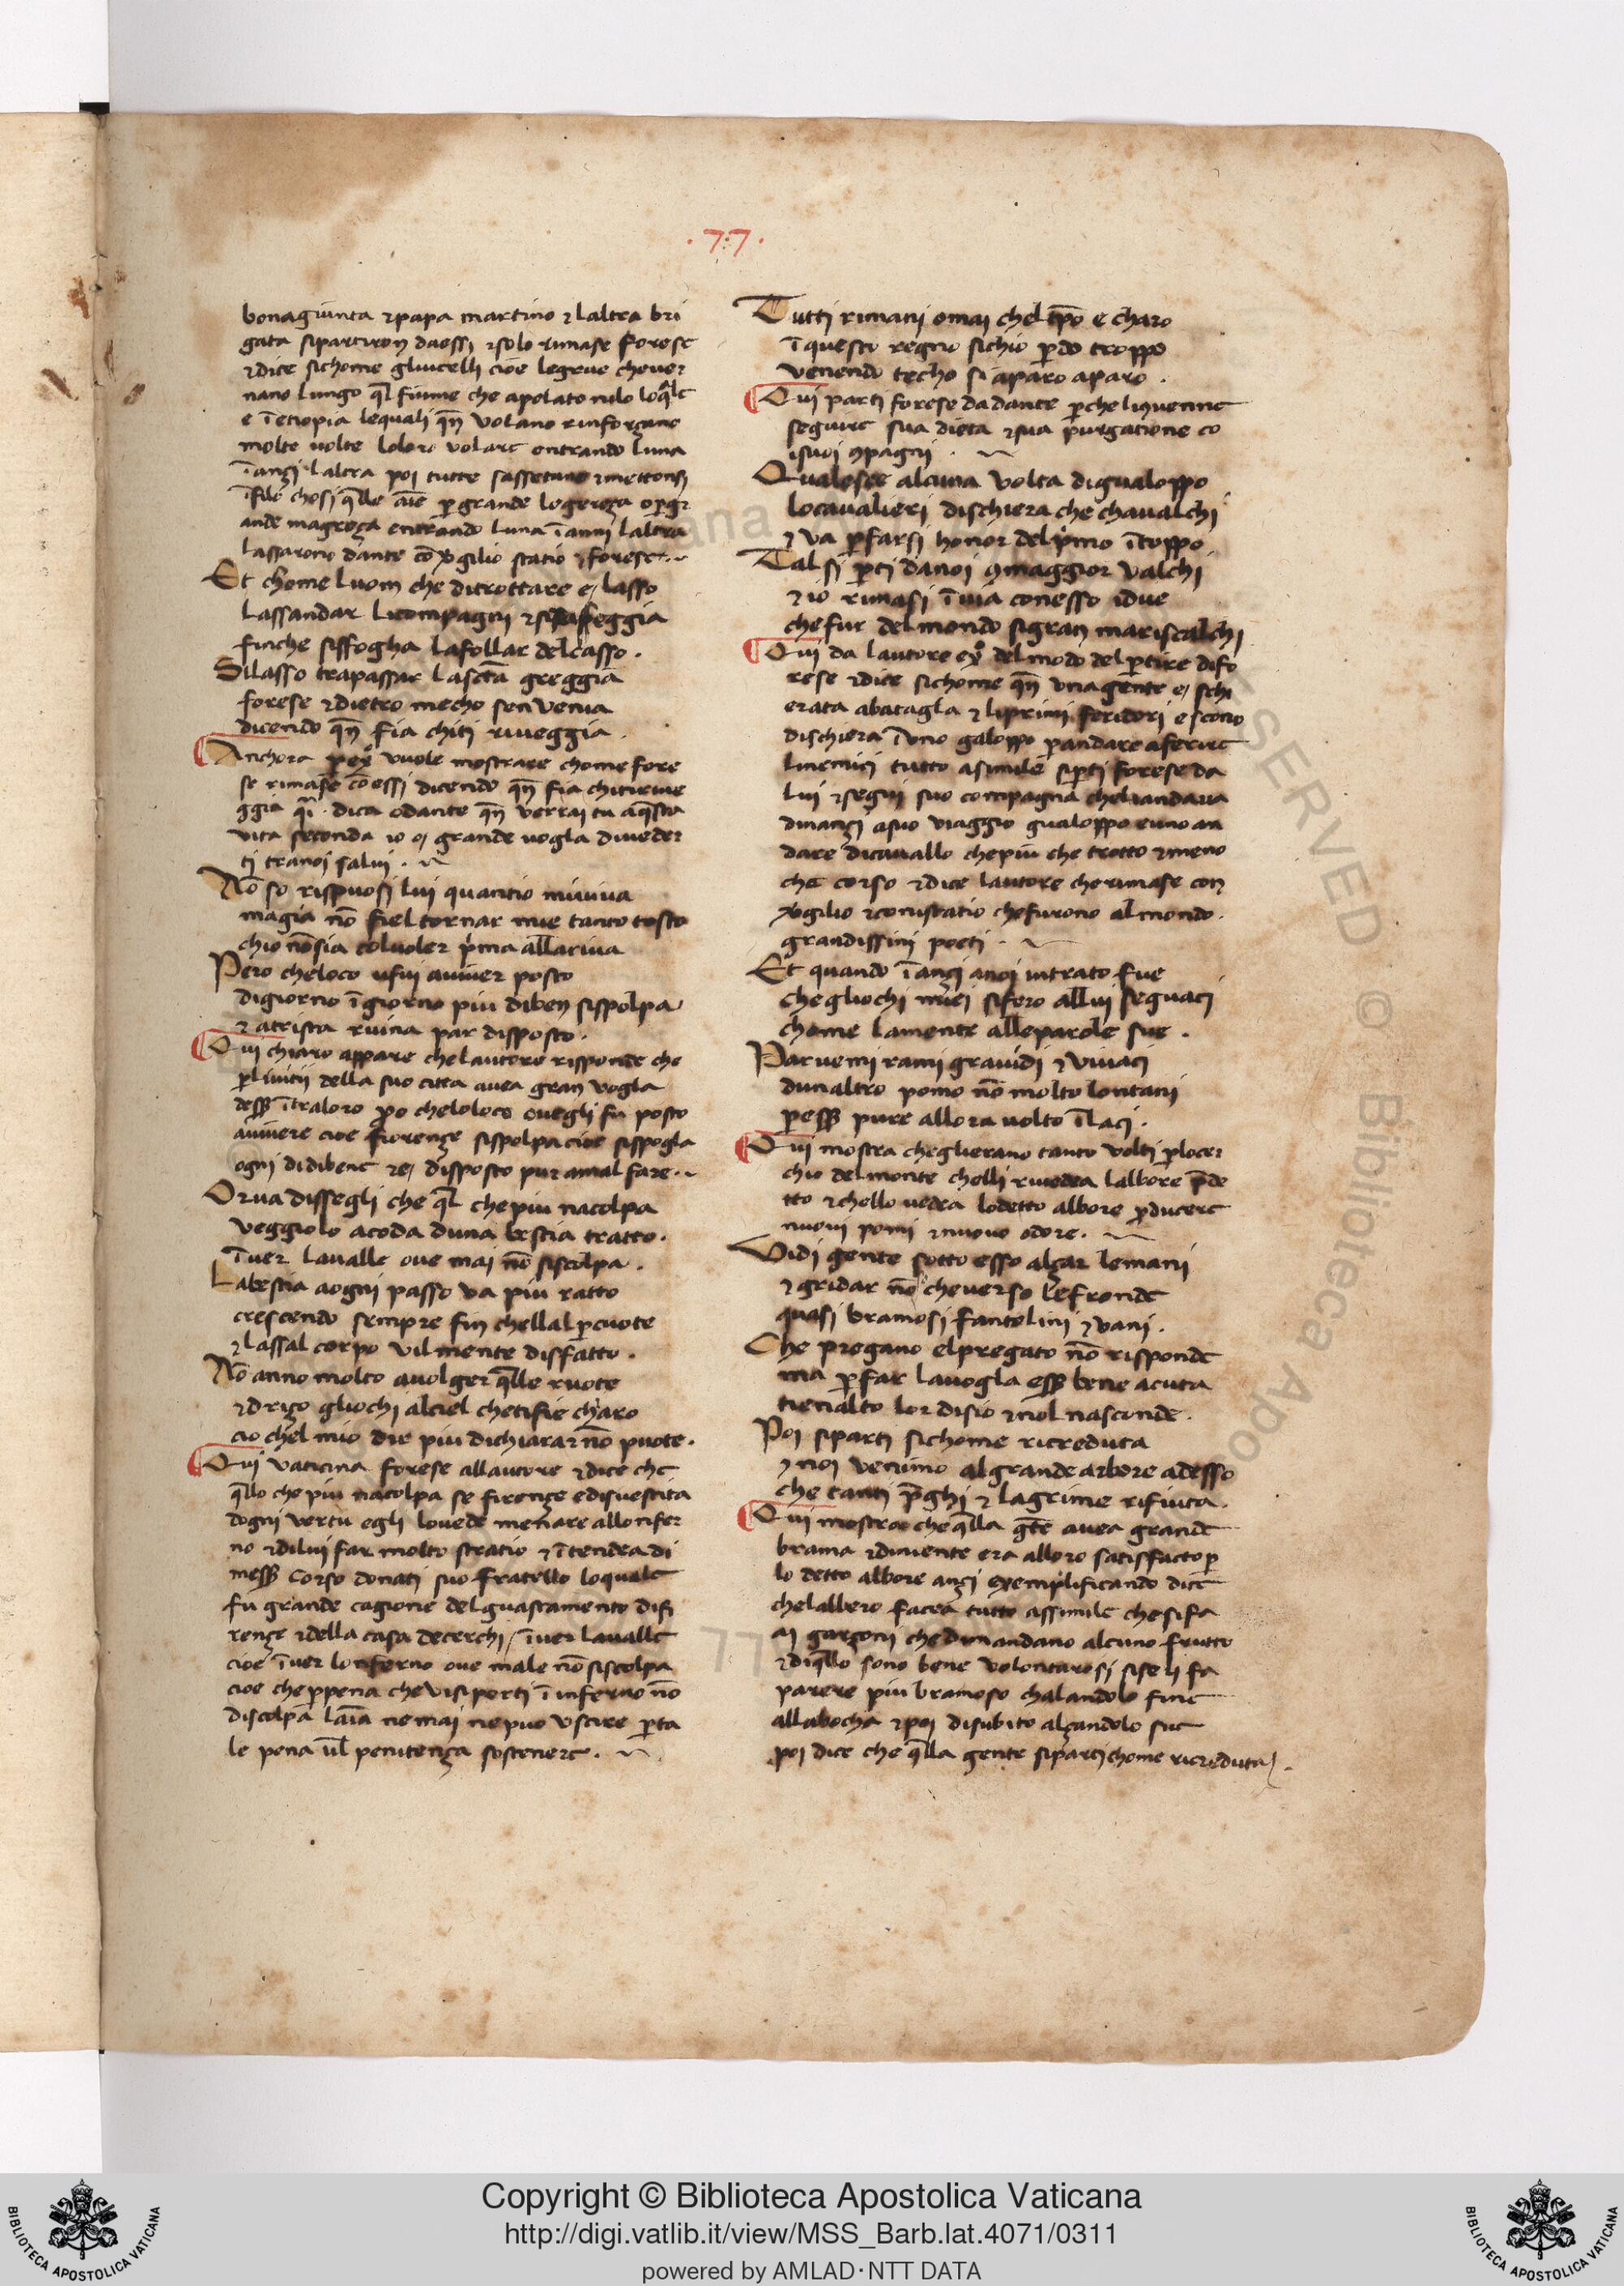 ·77·
bonagiunta ⁊papa martino ⁊laltra bri
gata sipartiron daessi ⁊solo rimase forese
⁊dice sichome gliucelli cioe legrue cheuer
nano lungo q̄l fiume che apelato nilo loq̄le
e ī etiopia lequali qn̄ volano rinforçano
molte uolte loloro volare entrando luna
īançi laltra poi tutte sassetano ⁊mettonsi
ī filo chosi q̄lle aīe ꝑ grande legereça oꝑgr
ande magreça entrando luna īanni laltra
lassarono dante cō v̄gilio statio ⁊forese
Et chome luom che ditrottare e lasso
lassandar licompagni ⁊sipasseggia
finche siffogha lafollar delcasso .
Silasso trapassar lasctā greggia
forese ⁊dietro mecho sen venia
dicendo qn̄ fia chiti riueggia .
Anchora vuole mostrare chome fore
se rimase cō essi dicendo qn̄ fia chitiriue
ggia qͥ . dica odante qn̄ verrai tu aq̄sta
vita seconda io o grande uogla diueder
ti tranoi salui .
Nō so rispuosi lui quantio miuiua
magia nō fieltornar mie tanto tosto
chio nōsia coluoler pͥma allariua
Pero cheloco ufui auiuer posto
digiorno īgiorno piu diben sispolpa
⁊ atrista ruina par disposto .
Qui chiaro appare chelautore risponde che
ꝑliuitii della suo citta auea gran vogla
dess̄ ītraloro ꝑo cheloloco ouegli fu posto
auiuere cioe fiorençe sispolpa cioe sispogla
ogni didibene ⁊e disposto pur amal fare .
Orua dissegli che q̄l chepiu nacolpa
veggiolo acoda duna bestia tratto .
īuer laualle oue mai nō siscolpa .
Labestia aogni passo va piu ratto
crescendo sempre fin chellal ꝑcuote
⁊lassal corpo vilmente disfatto .
Nō anno molto auolger q̄lle ruote
⁊driço gliochi alciel chetifie charo
cio chel mio dir piu dichiarar nō puote .
Qui vaticina forese allautore ⁊dice che
q̄llo che piu nacolpa se firençe edisuestita
dogni vertu egli louede menare allonfer
no ⁊dilui far molto stratio ⁊ītendea di
mess̄ Corso donati suo fratello loquale
fu grande cagione delguastamento difi
rençe ⁊della casa decerchi / īuer laualle
cioe īuer lonferno oue male nō siscolpa
cioe cheꝑpena chevisiporti ī inferno nō
discolpa laīa nemai nepuo vscire ꝑta
le pena ul̄ penitença sostenere .
Tutti rimani omai chel tp̄o e charo
ī questo regno sichio ꝑdo troppo
venendo techo si aparo aparo .
Qui parti forese dadante ꝑche liquenne
seguire sua dieta ⁊sua purgatione co
isuoi ꝯpagni .
Qualesce alcuna volta digualoppo
locaualieri dischiera che chaualchi
⁊ va ꝑfarsi honor delpͥmo ītoppo
Tal si ꝑti danoi ꝯmaggior valchi
⁊ io rimasi ī uia conesso idue
chefur del mondo sigran mariscalchi
Qui da lautore exͦ del modo del ꝑtire difo
rese ⁊dice sichome qn̄ vnagente e schi
erata abatagla ⁊ liprimi feridori escono
dischiera ī vno galoppo ꝑandare aferire
linemici tutto asimile siꝑti forese da
lui ⁊segui suo compagnia cheliandaua
dinançi asuo viaggio gualoppo euno an
dare dicauallo chepiu che trotto ⁊meno
che corso ⁊dice lautore cherimase con
v̄gilio ⁊constatio chefurono al mondo .
grandissini poeti .
Et quando īançi anoi intrato fue
che gliochi miei sifero allui seguaci
chome lamente alleparole sue .
Parvemi rami grauidi ⁊ viuaci
dunaltro pomo nō molto lontani
ꝑess̄ pure allora uolto ī laci .
Qui mostra cheglierano tanto volti ꝑlocer
chio delmonte chelli riuedea lalbore p̄de
tto ⁊chello uedea lodetto albore ꝓducere
nuoui pomi ⁊nuouo odore .
Vidi gente sotto esso alçar lemani
⁊gridar nō so cheuerso lefronde
quasi bramosi fantolini ⁊vani .
Che pregano elpregato nō risponde
ma ꝑfar lauogla ess̄ bene acuta
tienalto lor disio ⁊nol nasconde .
Poi siparti sichome ricreduta
⁊noi venimo algrande arbore adesso
che tanti p̄ghi ⁊ lagrime rifiuta .
Qui mostra cheq̄lla gēte auea grande
brama ⁊diniente era alloro satisfacto ꝑ
lo detto albore ançi exemplificando dice
chelalbero facea tutto assimile chesifa
ai garçoni chedimandano alcuno frutto
⁊diq̄llo sono bene volontarosi siseli fa
parere piu bramoso chalandolo fine
allabocha ⁊poi disubito alçandolo sue
poi dice che q̄lla gente siparti chome ricreduta .
Copyright © Biblioteca Apostolica Vaticana
http://digi.vatlib.it/view/MSS_Barb.lat.4071/0311
powered by AMLAD·NTT DATA
BIBLIOTECA APOSTOLICA VATICANA
BIBLIOTECA APOSTOLICA VATICANA